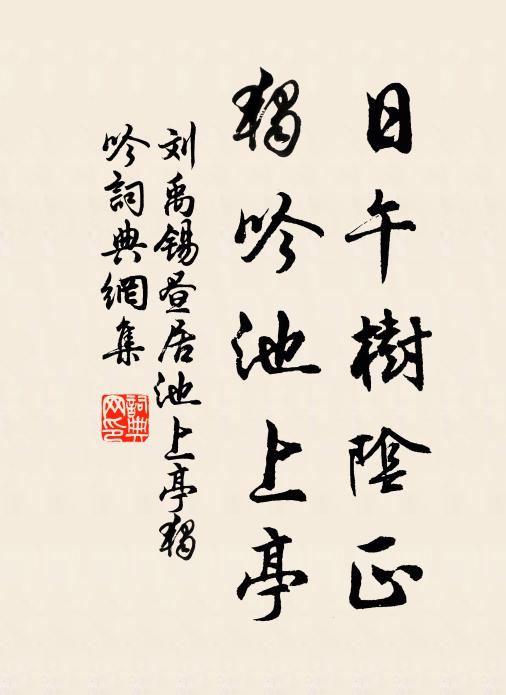 日午樹陰正
獨吟池上亭
刘禹锡昼居池上亭獨
吟詞典網集
詞典
网印